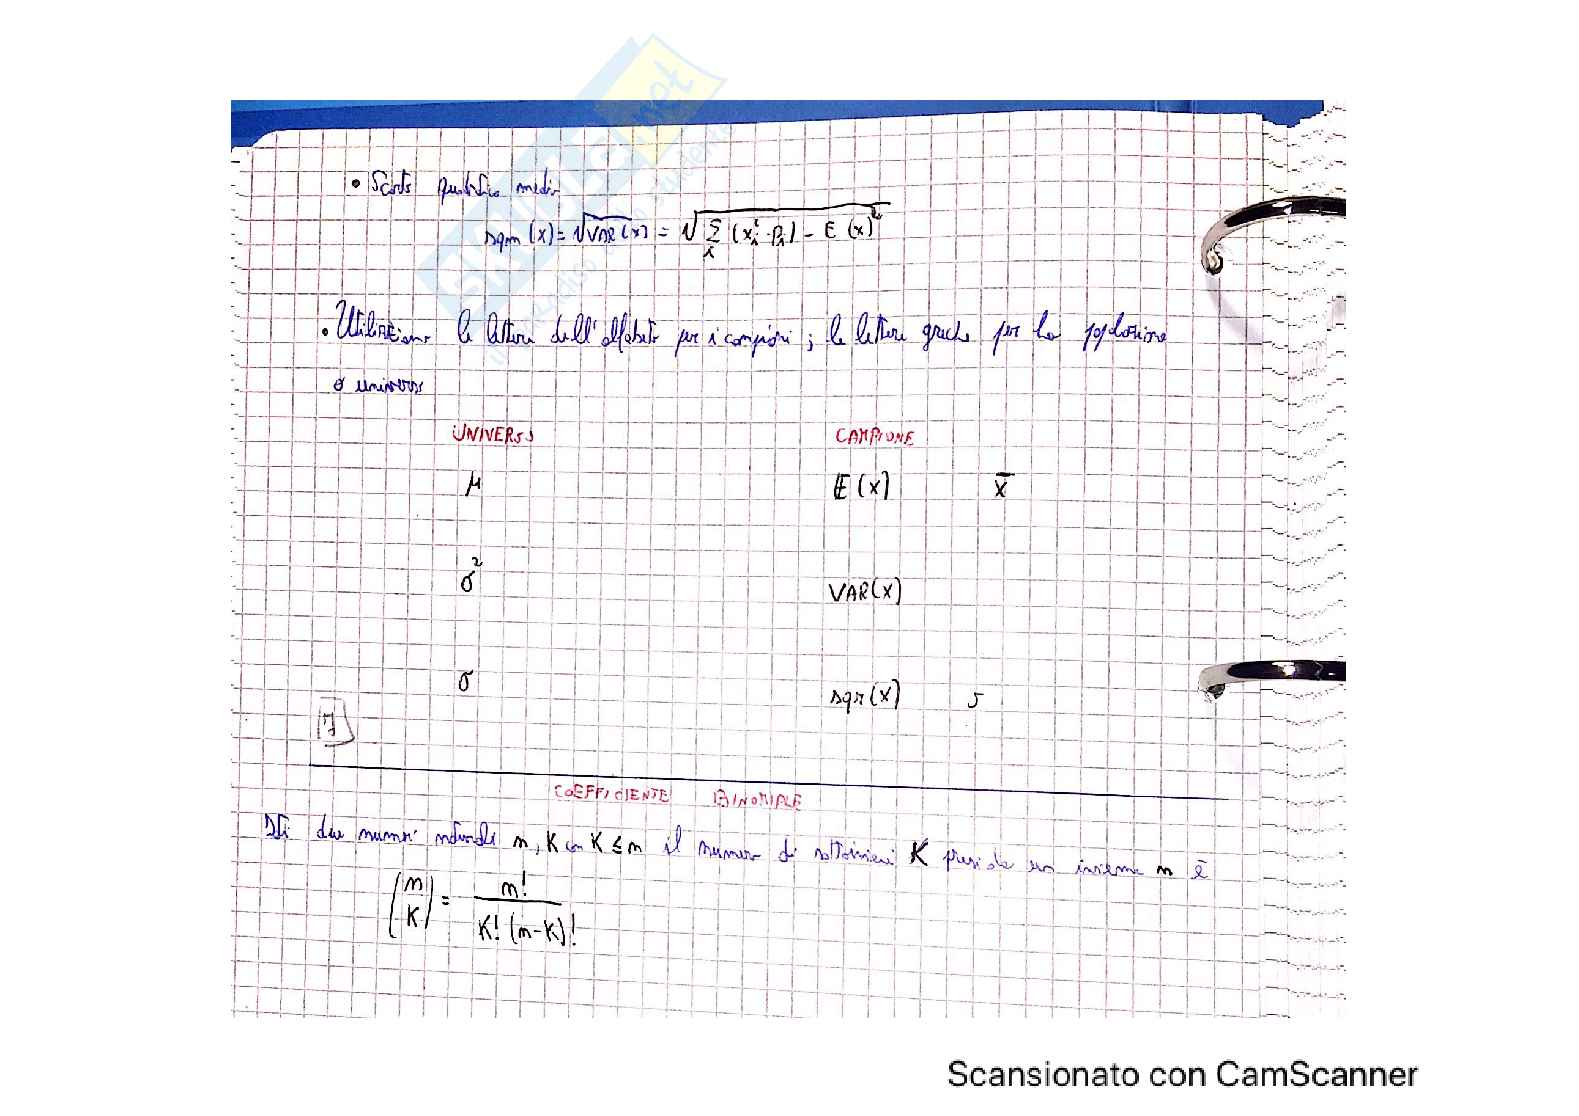 • Scarto quadratico medio
sqm (x) = √VAR(x) = √Σi (xi² · pi) - E (x)²
• Utilizziamo le lettere dell'alfabeto per i campioni; le lettere greche per la popolazione
o universo
UNIVERSO CAMPIONE
μ E(x) x̄
σ² VAR(x)
σ sqm(x) s
7
COEFFICIENTE BINOMIALE
Dati due numeri naturali n, K con K ≤ n il numero di sottoinsiemi K presi da un insieme n è
(n K) = n! / K! (n-K)!
Scansionato con CamScanner